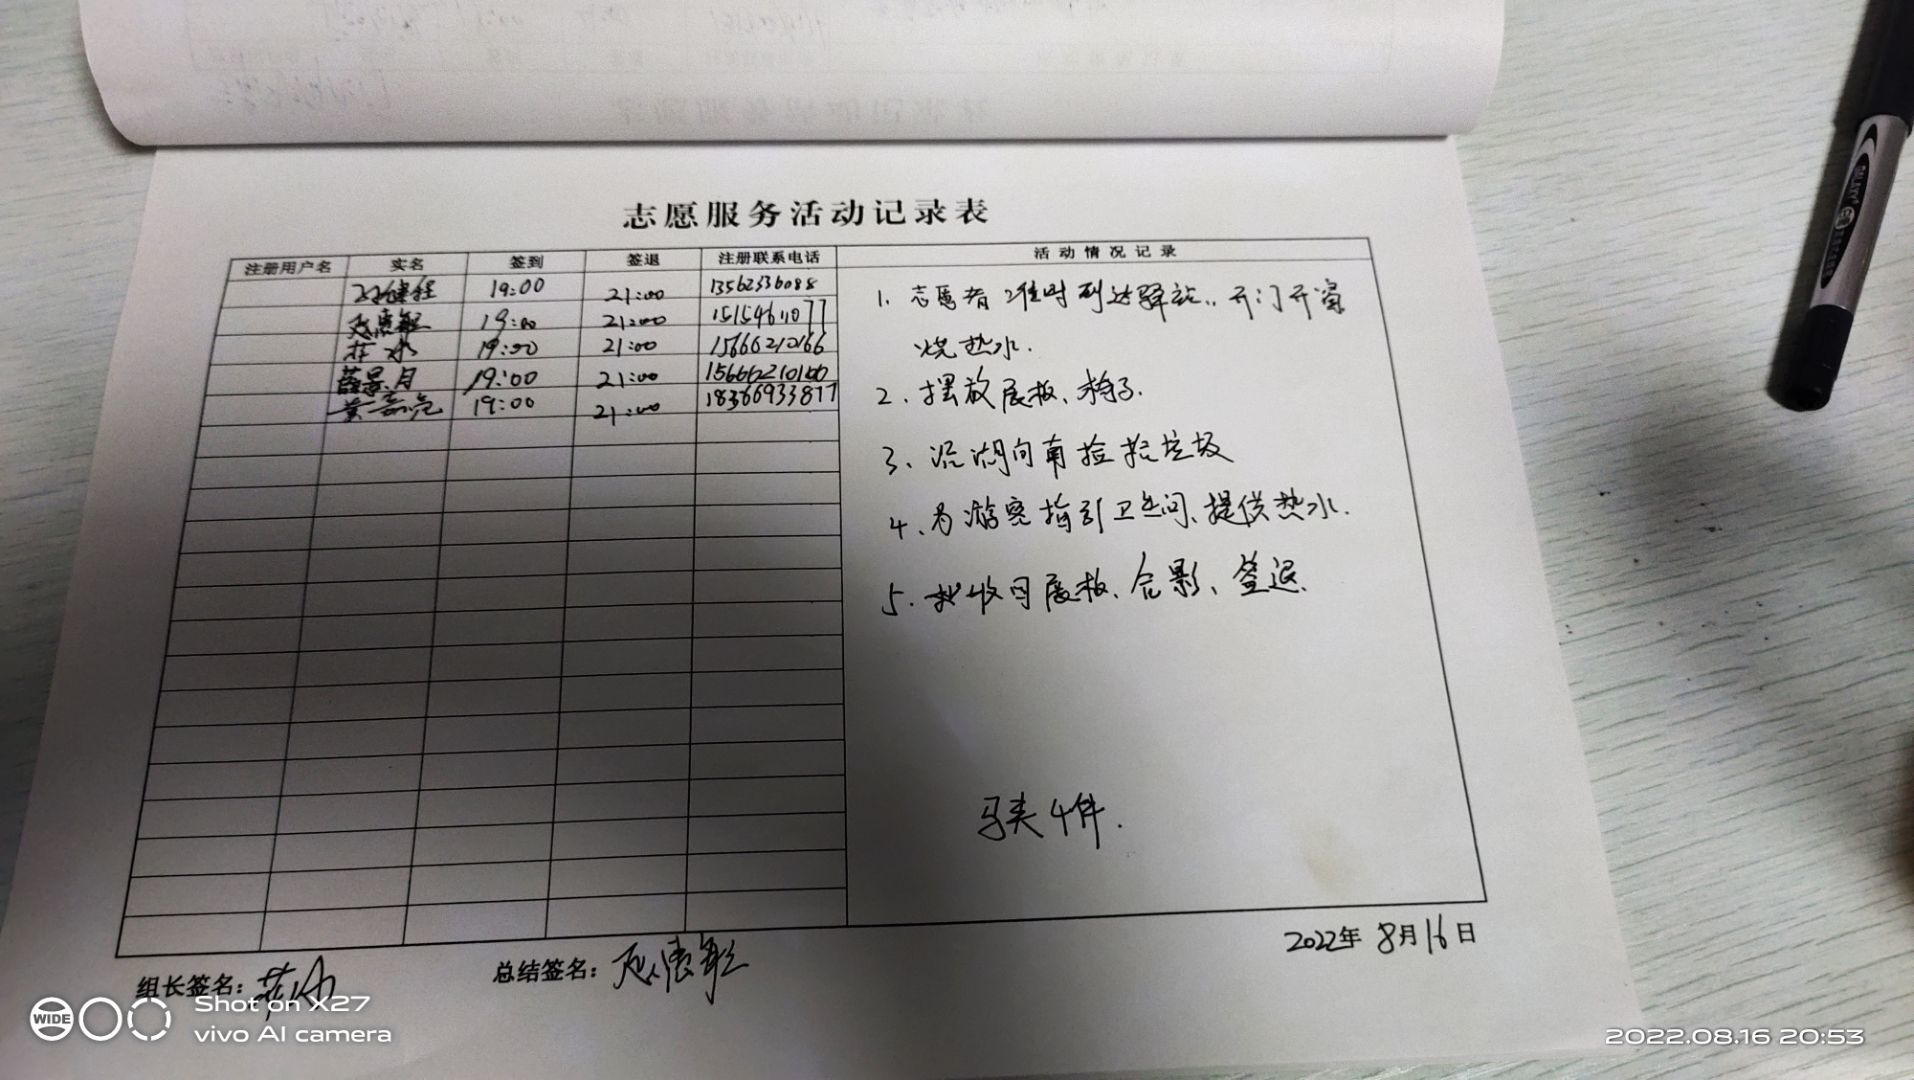 志愿服务活动记录表
注册用户名 实名 签到 签退 注册联系电话 活动情况记录
19:00 21:00 13562336088
赵惠敏 19:00 21:00 15154611077
庄水 19:00 21:00 15666210166
薛景月 19:00 21:00 15666210166
黄亮亮 19:00 21:00 18366933877
1. 志愿者准时到达驿站, 开门开窗
烧热水.
2. 摆放展板、椅子.
3、沿湖向南捡拾垃圾
4、为游客指引卫生间、提供热水.
5. 收回展板、合影、签退.
马夹4件.
2022年 8月16日
组长签名:
总结签名: 赵惠敏
WIDE
Shot on X27
vivo AI camera
2022.08.16 20:53